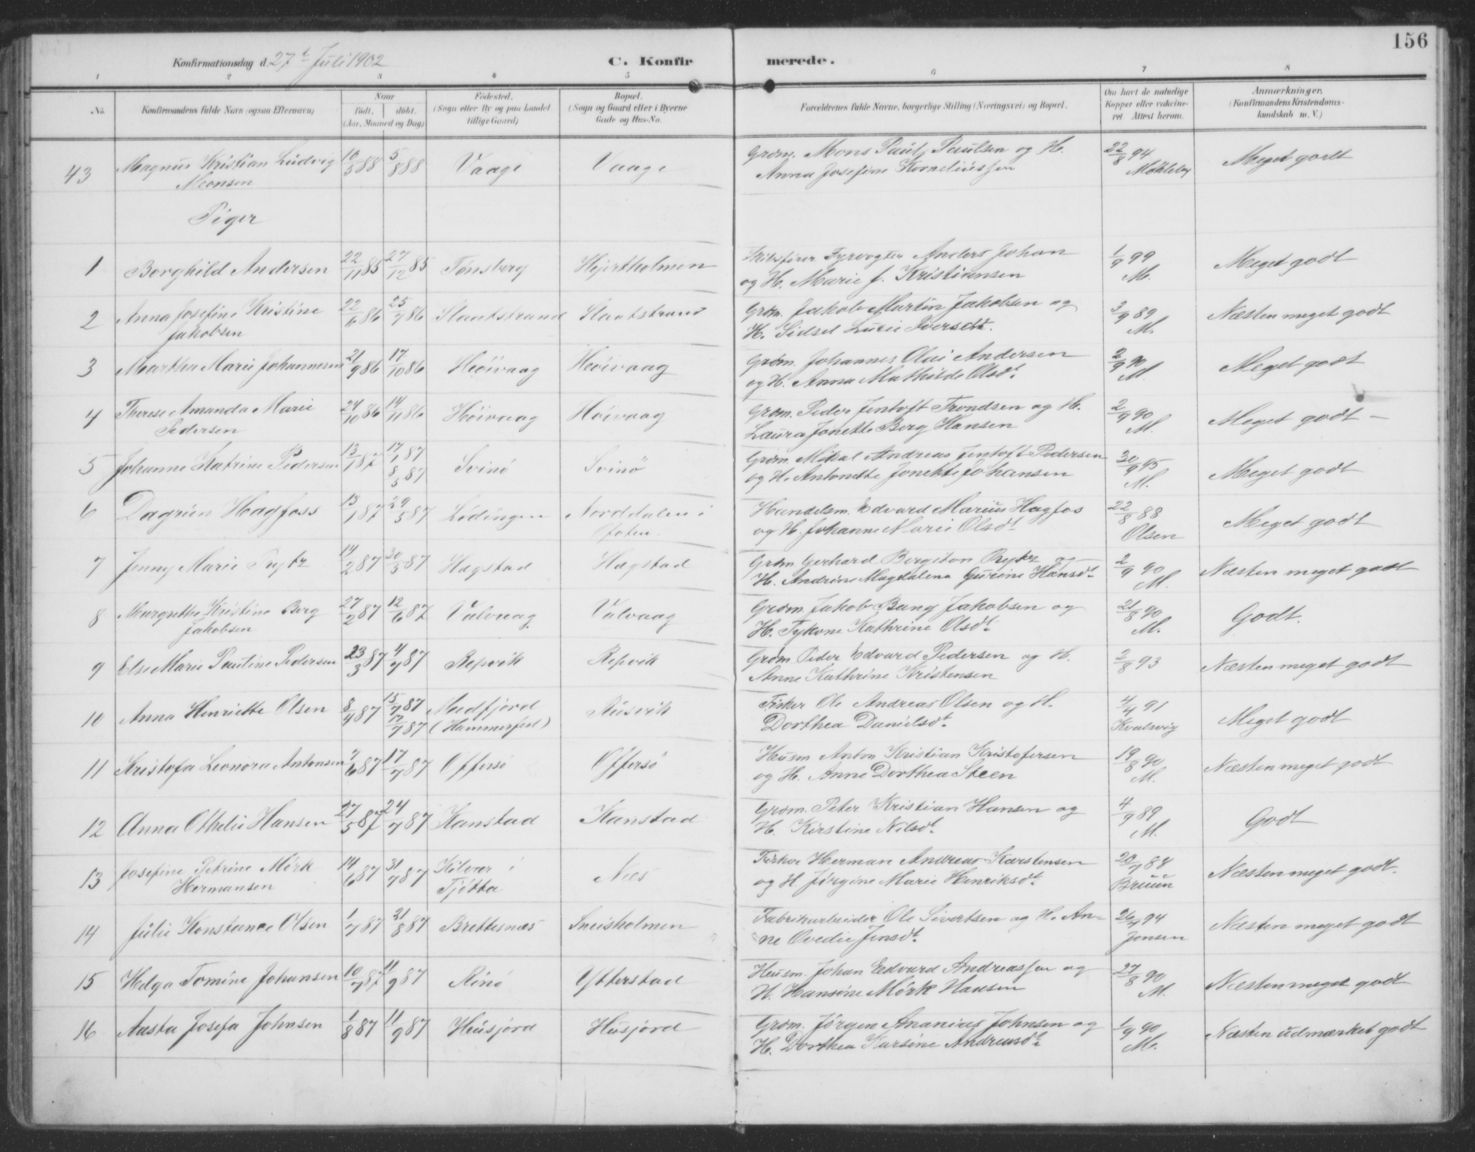 156
Konfirmationsdag d. 27t Juli 1902
C. Konfirmerede.
1 2 3 4 5 6 7 8
No. Konfirmandens fulde Navn (ogsaa Efternavn) Naar Født, døbt. (Aar, Maaned og Dag) Fødested. (Sogn eller By og paa Landet tillige Gaard) Bopæl. (Sogn og Gaard eller i Byerne Gade og Hus-No. Forældrenes fulde Navne, borgerlige Stilling (Næringsvei) og Bopæl. Om havt de naturlige Kopper eller vaccineret. Attest herom. Anmærkninger. (Konfirmandens Kristendomskundskab m. V.)
43 Magnus Kristian Ludvig Monsen 10/5 88 5/8 88 Vaage Vaage Grdm. Mons Paul Paulsen og H. Anna Josefine Korneliussen 22/8 94 Meget godt
Piger
1 Borghild Andersen 22/11 85 27/12 85 Tønsberg Hjertholmen Fyrvogter Anders Johan og H. Marie J. Kristiansen 1/9 99 M. Meget godt
2 Anna Josefine Kristine Jakobsen 22/6 86 25/7 86 Slaatstrand Slaatstrand Grdm. Jakob Martin Jakobsen og H. Sidsel Lucie Sversdt. 3/9 89 M. Næsten meget godt
3 Martha Marie Johannesen 21/9 86 17/10 86 Høivaag Høivaag Grdm. Johannes Olai Andersen og H. Anna Mathilde Olsdt. 2/9 90 M. Meget godt
4 Therese Amanda Marie Pedersen 24/10 86 14/11 86 Høivaag Høivaag Grdm. Peder Jentoft Trondsen og H. Laura Jonette Berg Hansen 2/9 90 M. Meget godt
5 Johanne Katrine Pedersen 13/1 87 17/1 87 8/5 87 Svinø Svinö Grdm. Mikal Andreas Jentoft Pedersen og H. Antonette Jonette Johansen 30/9 95 M. Meget godt
6 Dagrun Hagfoss 13/1 87 29/5 87 Lødingen Norddalen i Ofoten Handelsm. Edvard Marius Hagfos og H. Johanne Marie Olsdt 22/8 88 Olsen Meget godt
7 Jenny Marie 14/2 87 30/5 87 Hagstad Hagstad Grdm Gerhard Bergiton og H. Andrine Magdalena Gurine Hansdt 2/9 90 M. Næsten meget godt
8 Margrethe Kristine Berg Jakobsen 27/2 87 12/6 87 Valvaag Valvaag Grdm. Jakob Bang Jakobsen og H. Kathrine Olsdt 21/8 90 M. Godt.
9 Else Marie Pauline Pedersen 23/3 87 4/7 87 Repvik Repvik Grdm Peder Edvard Pedersen og H. Anne Kathrine Kristensen 2/8 93 Næsten meget godt
10 Anna Henriette Olsen 8/4 87 15/7 87 17/7 87 Mudfjord (Hammerfest) Rusvik Fisker Ole Andreas Olsen og H. Dorthea Danielsdt. 4/4 91 Kvalsvig Meget godt
11 Kristofa Leonora Antonsen 7/6 87 17/7 87 Offersø Offersø Husm Anton Kristian Kristofersen og H. Anne Dorthea Steen 19/8 90 M. Næsten meget godt
12 Anna Othelie Hansen 27/5 87 24/7 87 Kanstad Kanstad Grdm. Peter Kristian Hansen og H. Kirstine Nilsdt. 4/9 89 M. Godt
13 Josefine Petrine Mørk Hermansen 14/6 87 31/7 87 i Tjøtta Næs Herman Andreas Karstensen og H Jørgine Marie Henriksdt. 20/7 84 Bruun Næsten meget godt.
14 Julie Konstance Olsen 1/7 87 21/8 87 Brettesnæs Sneisholmen Fabrikarbeider Ole Sivertsen og H. Anne Ovedie Jensdt. 26/4 94 Jensen Næsten meget godt
15 Helga Tomine Johansen 10/7 87 11/9 87 Rinø Ytterstad Husm. Johan Edvard Andreassen og H. Hansine Mørk Hansen 27/8 90 M. Næsten meget godt
16 Aasta Josefa Johnsen 1/8 87 11/9 87 Husjord Husjord Grdm. Jørgen Ananias Johnsen og H. Dorthea Karsine Andreasdt. 1/9 90 M. Næsten udmærket godt